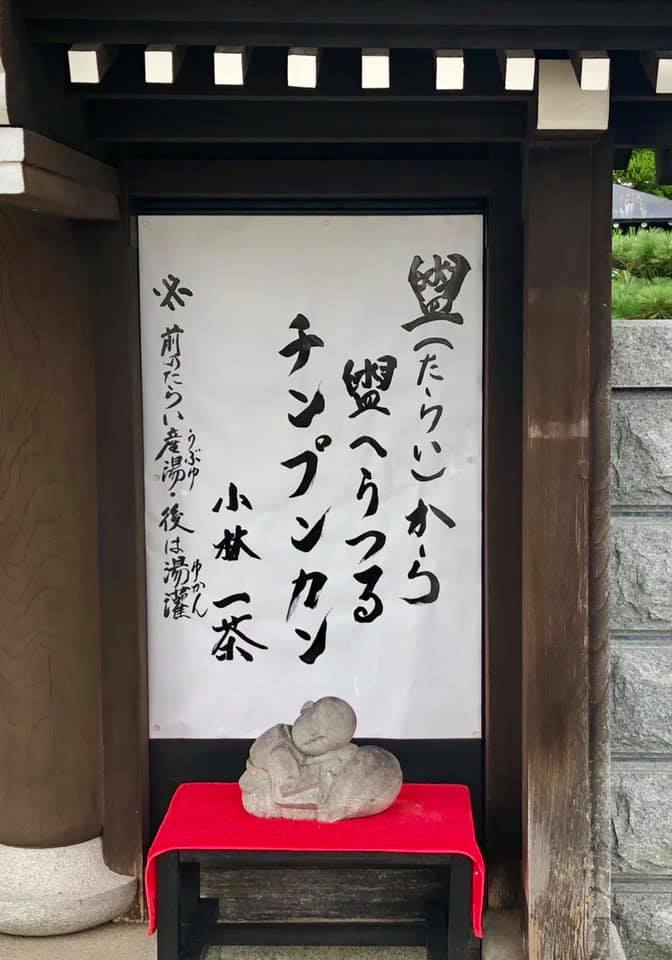 盥(たらい)から
盥へうつる
チンプンカン
小林一茶
※前のたらい産湯・後は湯灌
うぶゆ
ゆかん